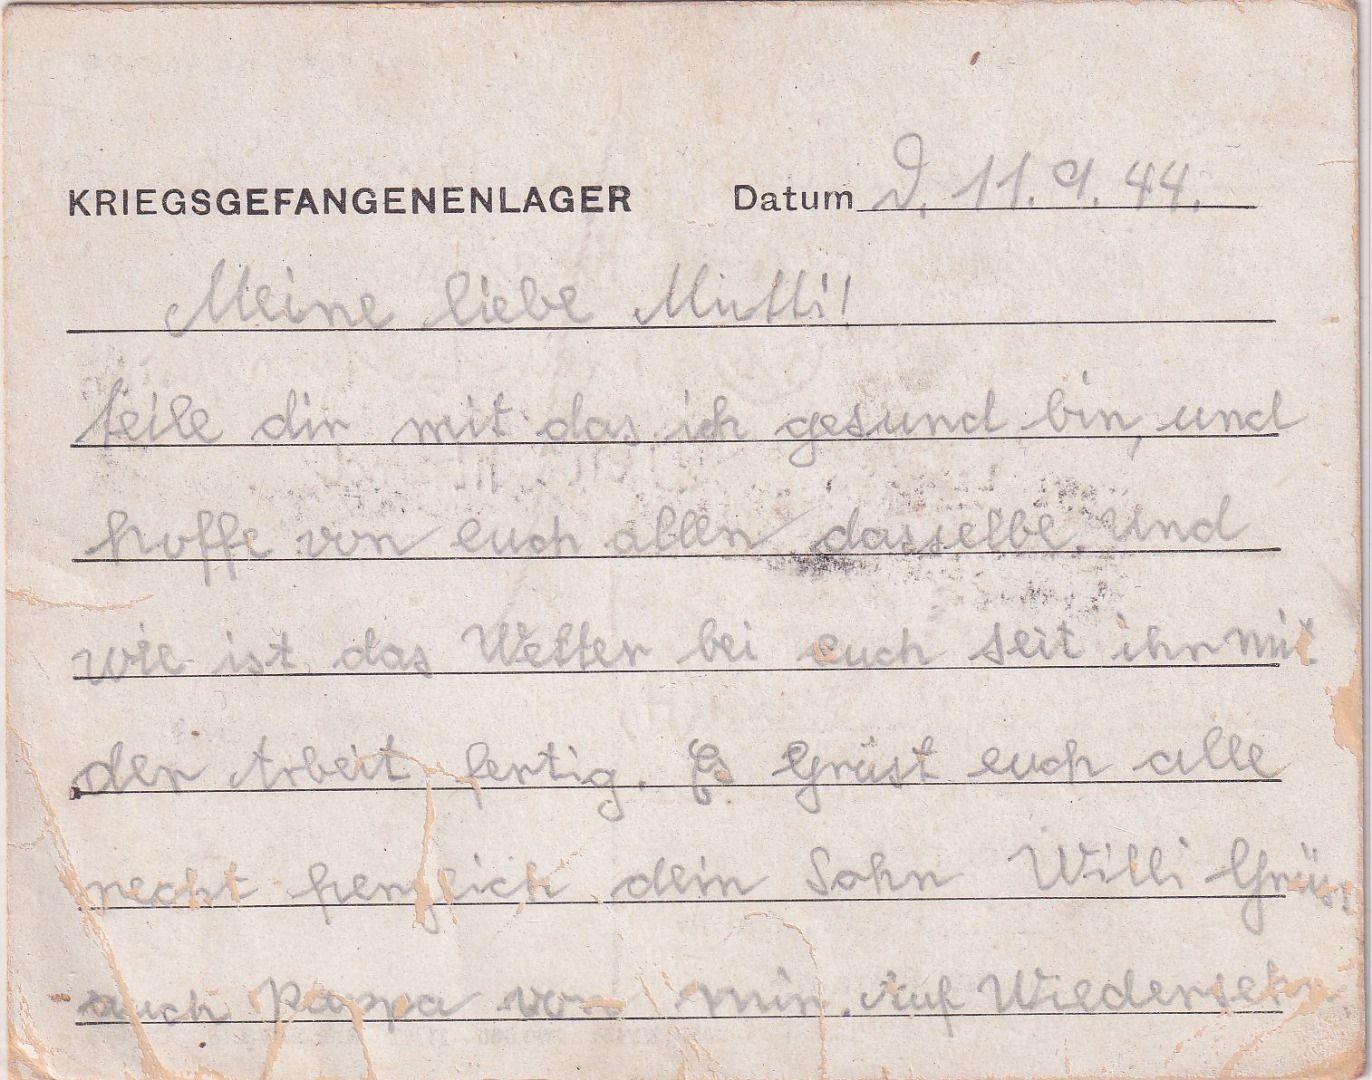 KRIEGSGEFANGENENLAGER Datum D. 11. 9. 44.
Meine liebe Mutti!
teile dir mit das ich gesund bin, und
hoffe von euch allen dasselbe. Und
wie ist das Wetter bei euch seit ihr mit
der Arbeit fertig. Es Grüst euch alle
recht herzlich dein Sohn Willi Grüse
auch Pappa von mir. Auf Wiedersehn